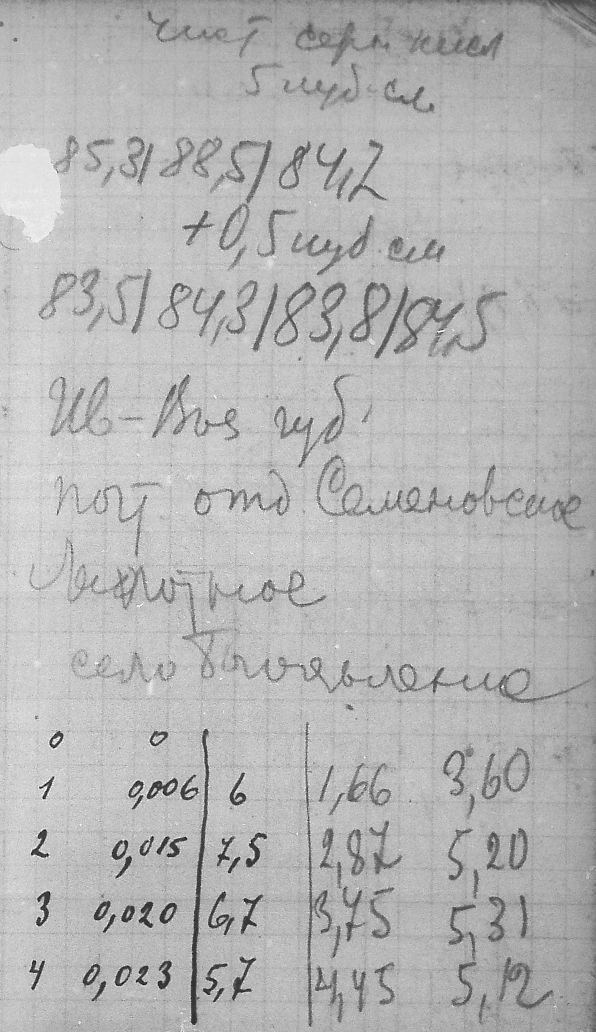 чист серн кисл
5 куб. см
85,3/ 88,5/ 84,2
+0,5 куб см
83,5/ 84,3/ 83,8/ 84,5
Ив-Воз губ.
почт. отд. Семеновское
село
0 0
1 0,006 6 1,66 3,60
2 0,015 7,5 2,87 5,20
3 0,020 6,7 3,75 5,31
4 0,023 5,7 4,45 5,12